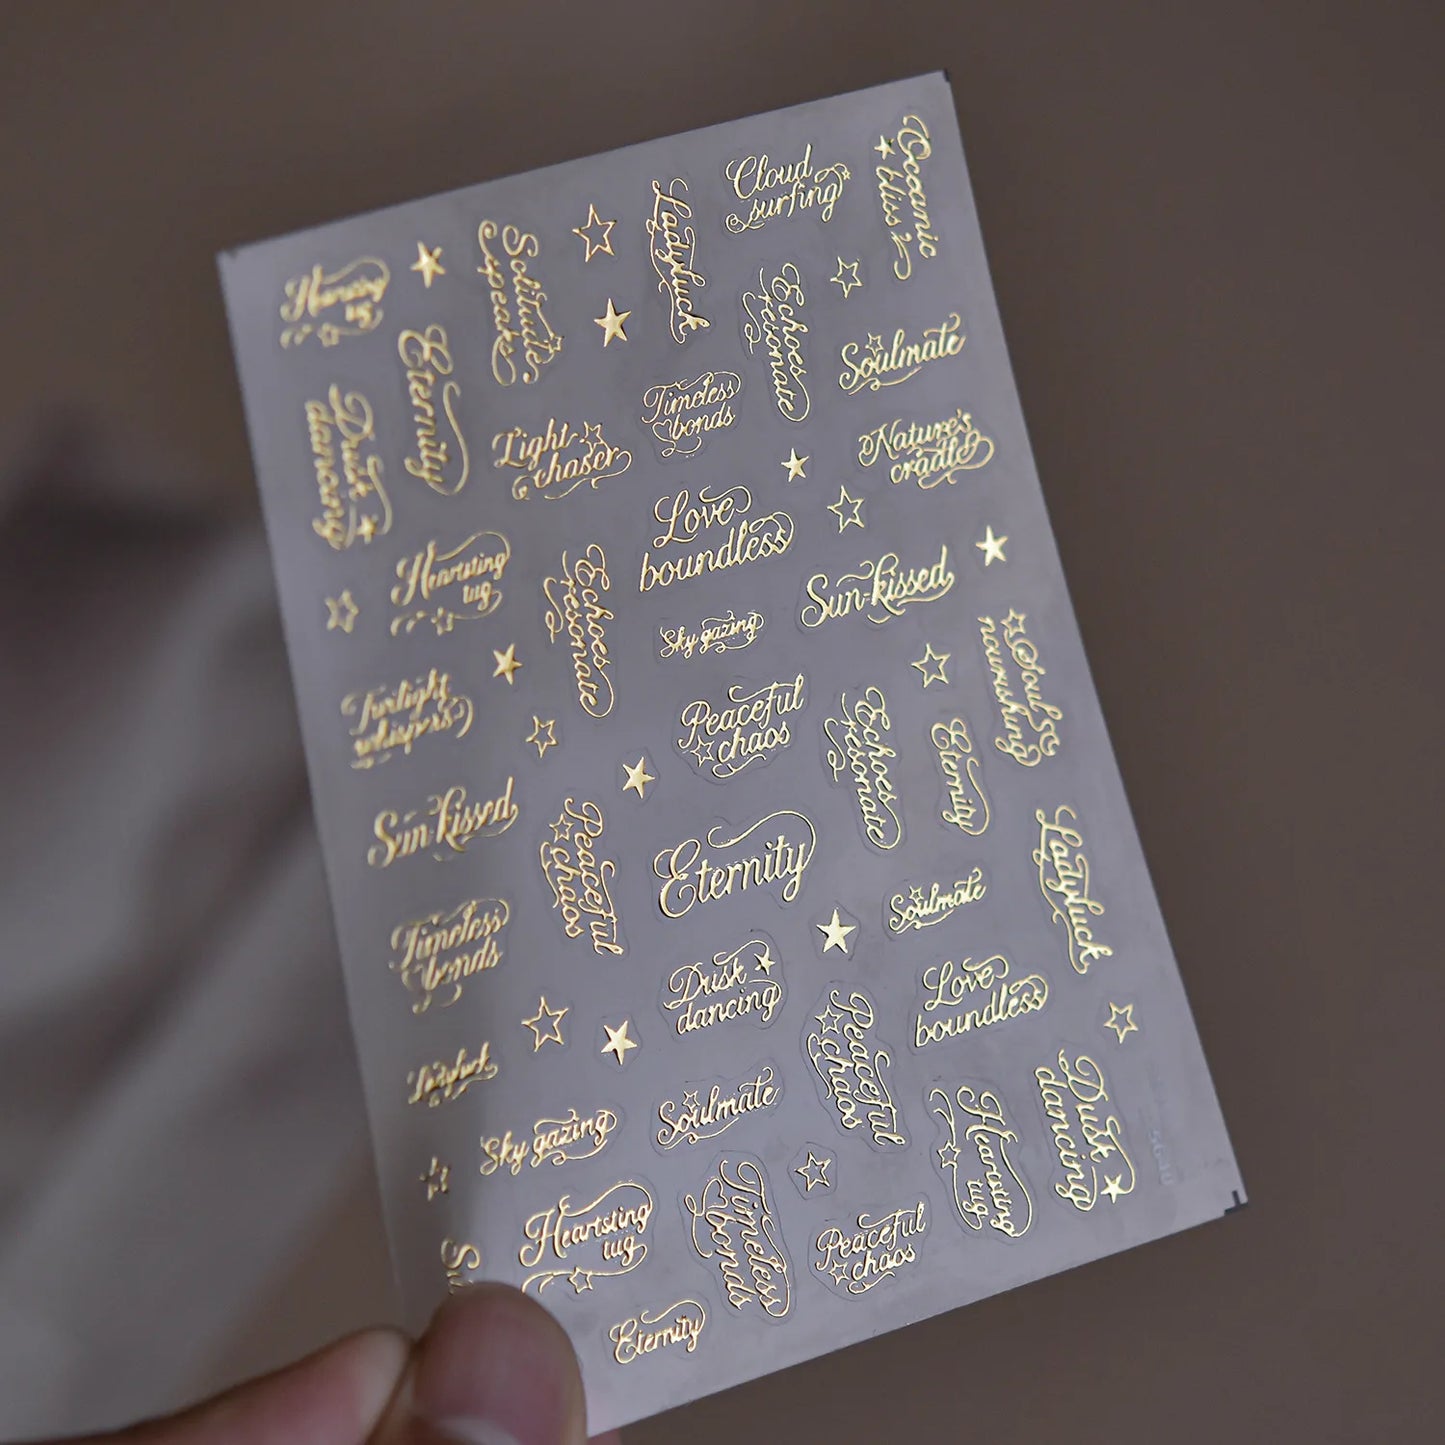 Cloud
surfing
Oceanic
bliss
Ladyluck
Solitude
speaks
Hearsting
tug
Eternity
Echoes
resonate
Soulmate
Timeless
bonds
Dusk
dancing
Light
chaser
Nature's
cradle
Love
boundless
Hearsting
tug
Echoes
resonate
Sun-kissed
Sky gazing
Soul
nourishing
Twilight
whispers
Peaceful
chaos
Echoes
resonate
Eternity
Sun-kissed
Peaceful
chaos
Eternity
Ladyluck
Soulmate
Timeless
bonds
Dusk
dancing
Love
boundless
Peaceful
chaos
Ladyluck
Soulmate
Dusk
dancing
Sky gazing
Hearsting
tug
Hearsting
tug
Timeless
bonds
Peaceful
chaos
Eternity